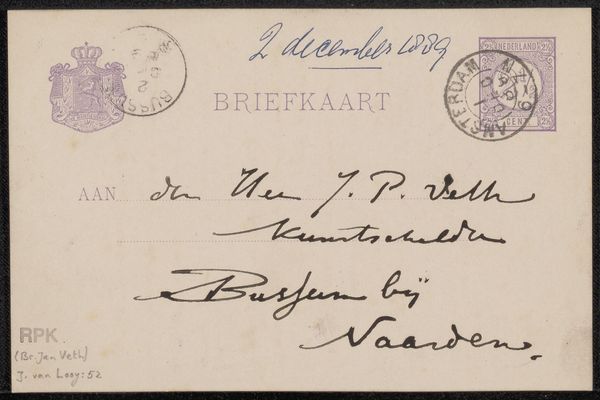 2 december 1889
NEDERLAND
2½ CENT 2½
BUSSUM
AMSTERDAM
BRIEFKAART
AAN den Heer J. P. Veth
Kunstschilder
Bussum bij
Naarden.
RPK
(Br. Jan Veth)
J. van Looy: 52